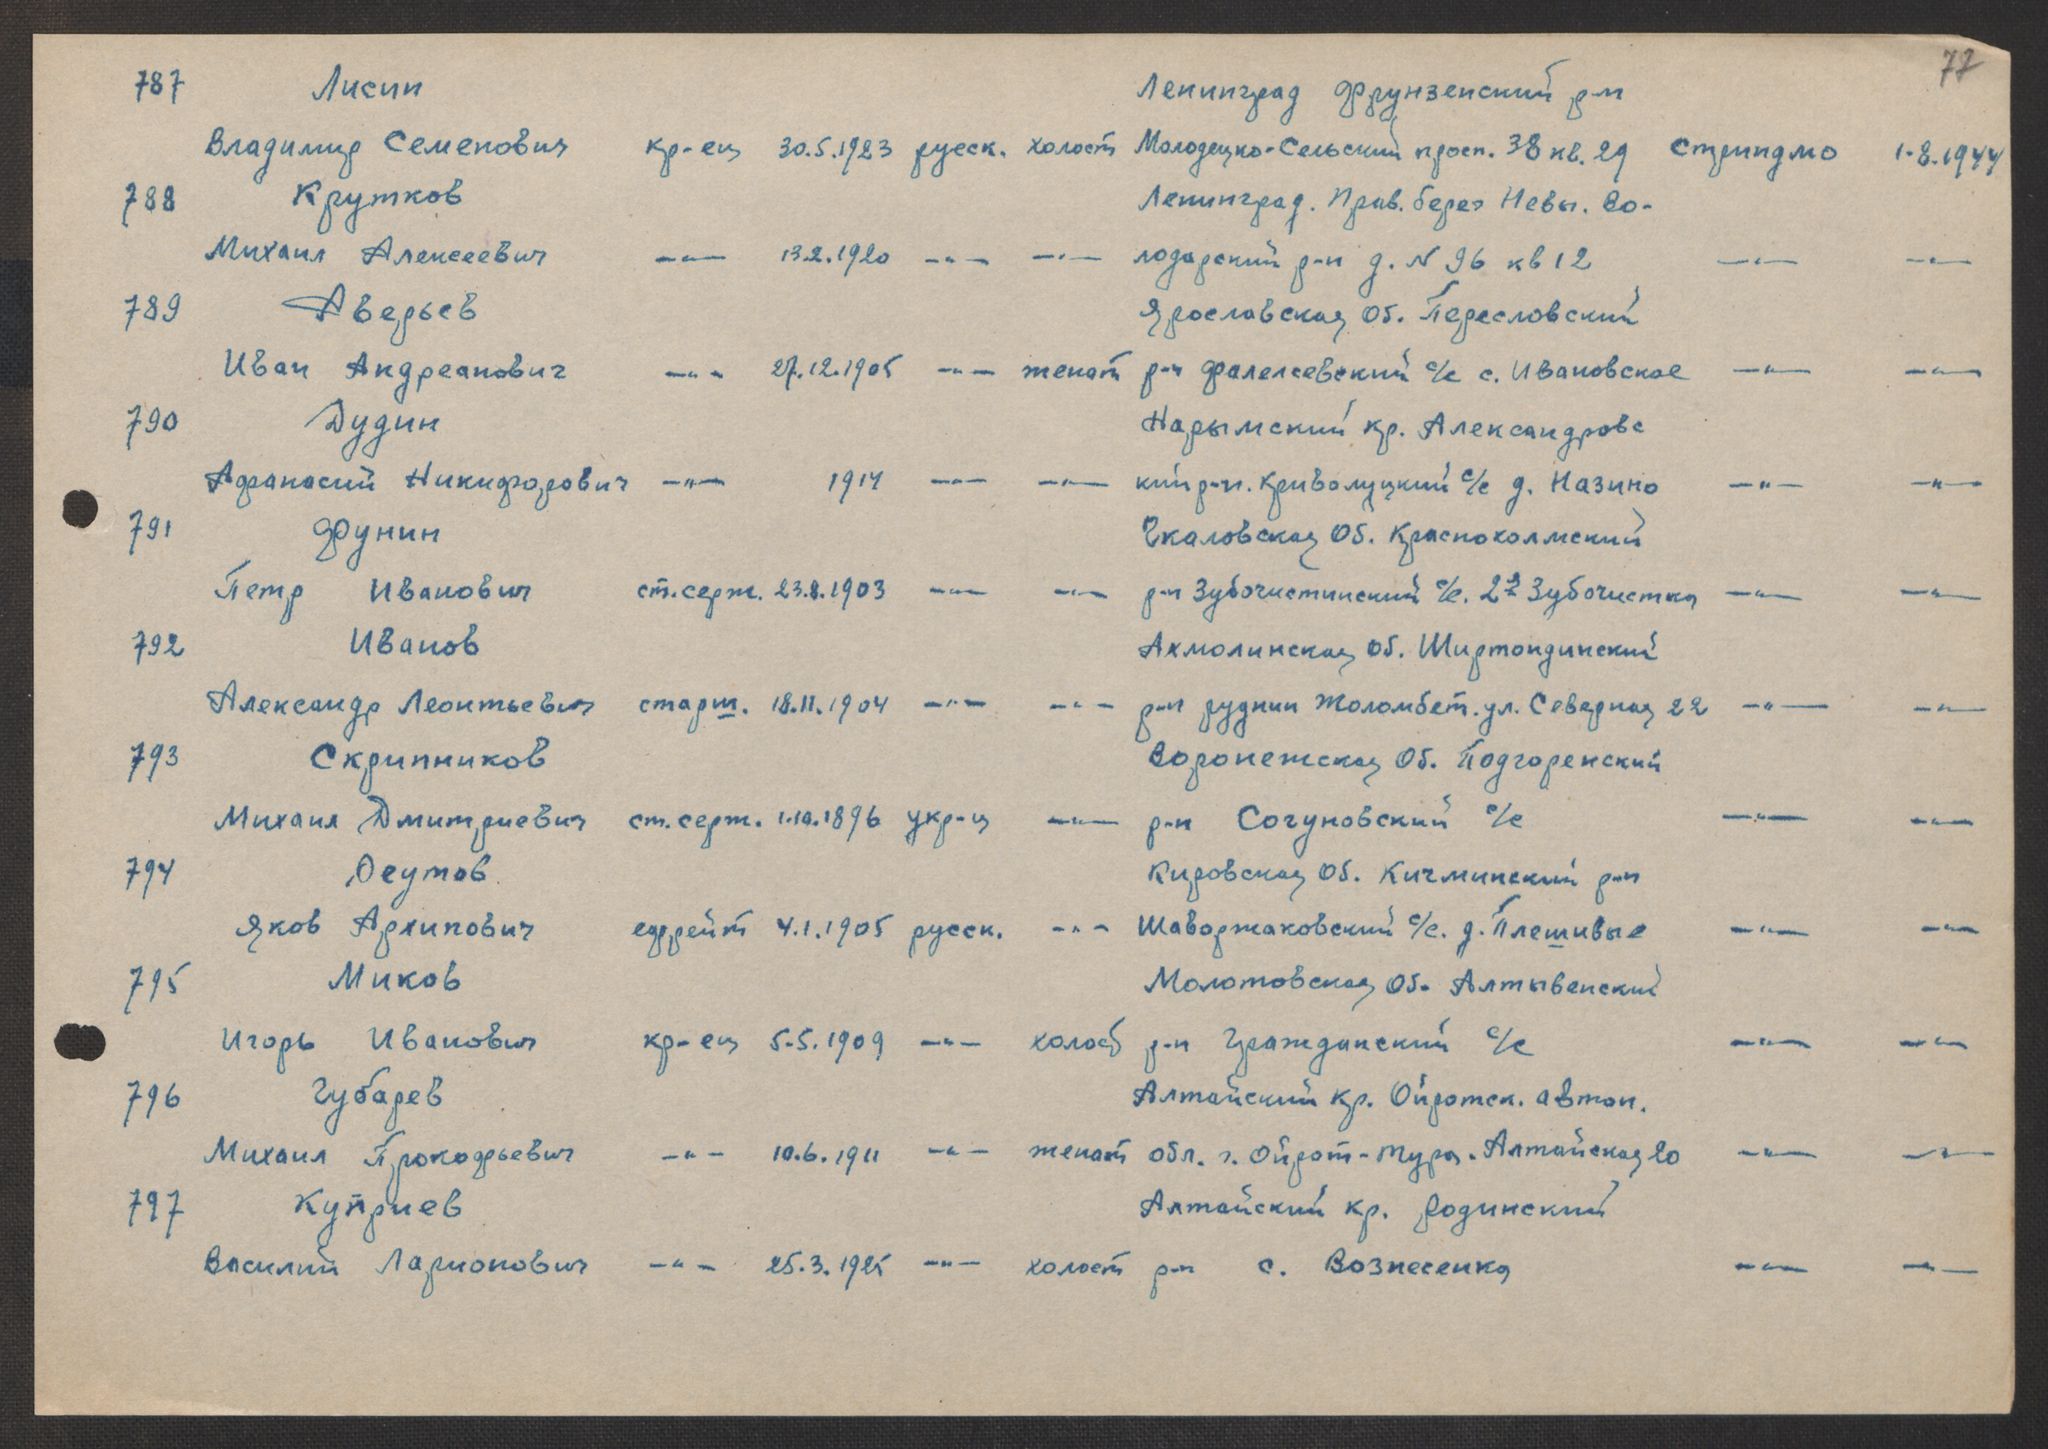 77
787 Лисин Ленинград Фрунзенский р-н
Владимир Семенович кр-ец 30.5.1923 русск. холост Молодецко-Сельский просп. 38 кв. 29 Стриндмо 1.8.1944
788 Крутков Ленинград. Прав. берег Невы. Во-
Михаил Алексеевич —"— 13.2.1920 —"— —"— лодарский р-н д. N 96 кв 12 —"— —"—
789 Аверьев Ярославская Об. Пересловский
Иван Андреанович —"— 27.12.1905 —"— женат р-н Фалелеевский с/с с. Ивановское —"— —"—
790 Дудин Нарымский кр. Александровс
Афанасий Никифорович —"— 1914 —"— —"— кий р-н. Криволуцкий с/с д. Назино —"— —"—
791 Фунин Чкаловская Об. Краснохолмский
Петр Иванович ст. серж. 23.8.1903 —"— —"— р-н Зубочистинский с/с. 2я Зубочистка —"— —"—
792 Иванов Ахмолинская Об. Ширтондинский
Александр Леонтьевич старш. 18.11.1904 —"— —"— р-н рудник Жоломбет. ул. Северная 22 —"— —"—
793 Скрипников Воронежская Об. Подгоренский
Михаил Дмитриевич ст. серж. 1.10.1896 укр-ц —"— р-н Согуновский с/с —"— —"—
794 Осутов Кировская Об. Кичминский р-н
Яков Архипович ефрейт 4.1.1905 русск. —"— Шаворжаковский с/с. д. Плешивые —"— —"—
795 Миков Молотовская Об. Алтывенский
Игорь Иванович кр-ец 5.5.1909 —"— холост р-н Гражданский с/с —"— —"—
796 Губарев Алтайский кр. Ойротск. автон.
Михаил Прокофьевич —"— 10.6.1911 —"— женат обл. г. Ойрот-Тура. Алтайская 20 —"— —"—
797 Куприев Алтайский кр. Родинский
Василий Ларионович —"— 25.3.1925 —"— холост р-н с. Вознесенка —"— —"—